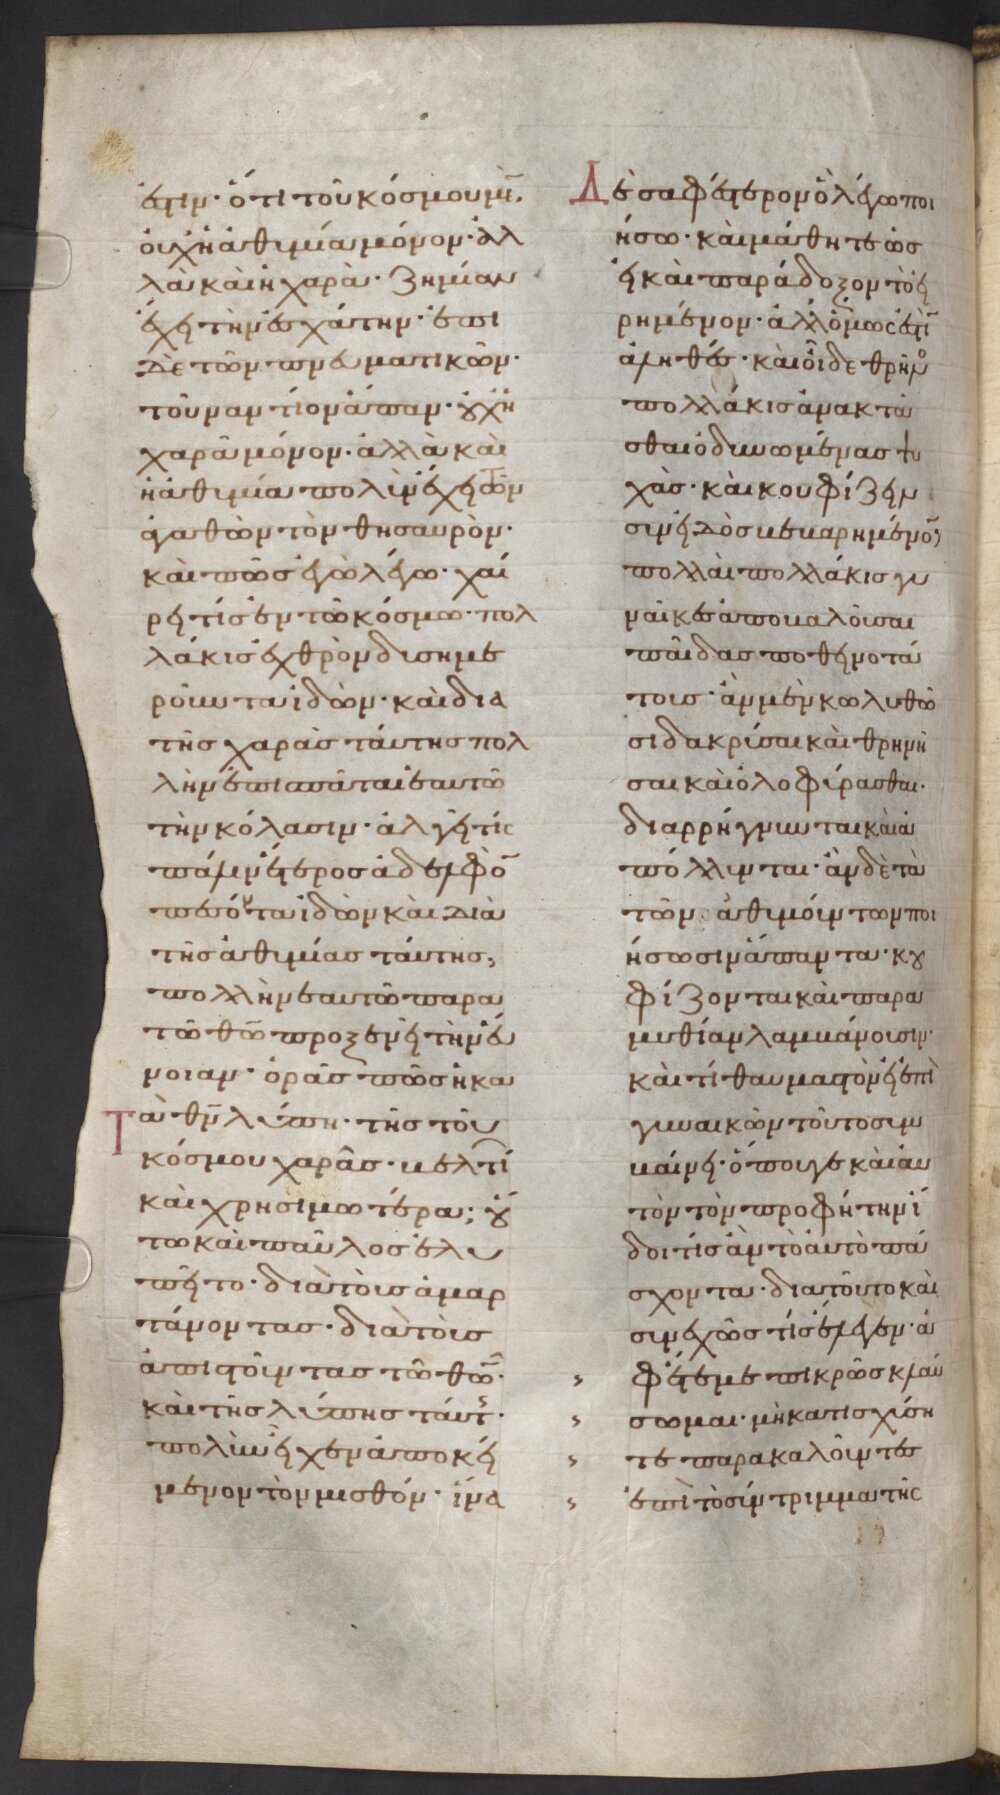 ἐστιν· ὅτι τοῦ κόσμου μὲν,
οὐχὴ ἀθυμία μόνον· ἀλ
λὰ καὶ ἡ χαρὰ· ζημίαν
ἔχει τὴν ἐσχάτην· ἐπὶ
δὲ τῶν πνευματικῶν·
τοὐναντίον ἅπαν· οὐχὴ
χαρὰ μόνον· ἀλλὰ καὶ
ἡ ἀθυμία πολὺν ἔχει τῶν
ἀγαθῶν τὸν θησαυρὸν·
καὶ πῶς ἐγὼ λέγω· χαί
ρει τίς ἐν τῶ κόσμω· πολ
λάκις ἐχθρὸν δυσημε
ροῦντα ἰδὼν· καὶ δια
τῆς χαρὰς ταύτης πολ
λὴν ἐπισπᾶται ἑαυτῶ
τὴν κόλασιν· ἀλγεῖ τίς
πάλιν ἕτερος ἀδελφὸν
πεσόντα ἰδὼν καὶ διὰ
τῆς ἀθυμίας ταύτης,
πολλὴν ἑαυτῶ παρα
τῶ θῶ προξενεῖ τὴν εὔ
νοιαν· ὁρᾶς πῶς ἡ κα
τὰ θν λύπη· τῆς τοῦ
κόσμου χαρᾶς· βελτί
καὶ χρησιμωτέρα; οὕ
τω καὶ παῦλος ἐλυ
πεῖτο· διὰ τοὺς ἁμαρ
τάνοντας· διὰ τοὺς
ἀπιστοῦντας τῶ θῶ·
καὶ τῆς λύπης ταύτης·
πολὺν εἶχεν ἀποκεί
μενον τὸν μισθόν· ἵνα
Δὲ σαφέστερον ὃ λέγω ποι
ήσω· καὶ μάθητε ὡς
εἰ καὶ παράδοξον τὸ εἰ
ρημένον· ἀλλ' ὅμως ἐστὶν
ἀληθές· καὶ οἶδε θρῆνος
πολλάκις ἀνακτᾶ
σθαι ὀδυνωμένας ψυ
χὰς· καὶ κουφίζειν
συνειδὸς βεβαρημένον,
πολλαὶ πολλάκις γυ
ναῖκες ἀποβαλοῦσαι
παῖδας ποθεινοτά
τους· ἂν μὲν κωλυθῶ
σι δακρύσαι καὶ θρηνῆ
σαι καὶ ὀλοφύρασθαι·
διαρρήγνυνται καὶ ἀ
πόλλυνται· ἂν δὲ τὰ
τῶν ἀθυμούντων ποι
ήσωσιν ἅπαντα· κου
φίζονται καὶ παρα
μυθίαν λαμβάνουσιν·
καὶ τί θαυμαστὸν εἰ ἐπὶ
γυναικῶν τοῦτο συμ
βαίνει· ὅπουγε καὶ αὐ
τὸν τὸν προφήτην ἴ
δοι τίς ἂν τὸ αὐτὸ πά
σχοντα· διατοῦτο καὶ
συνεχῶς τίς ἔλεγεν· ἄ
φετε με πικρῶς κλαύ
σωμαι· μὴ κατισχύση
τε παρακαλοῦντες
ἐπὶ τὸ σύντριμμα τῆς